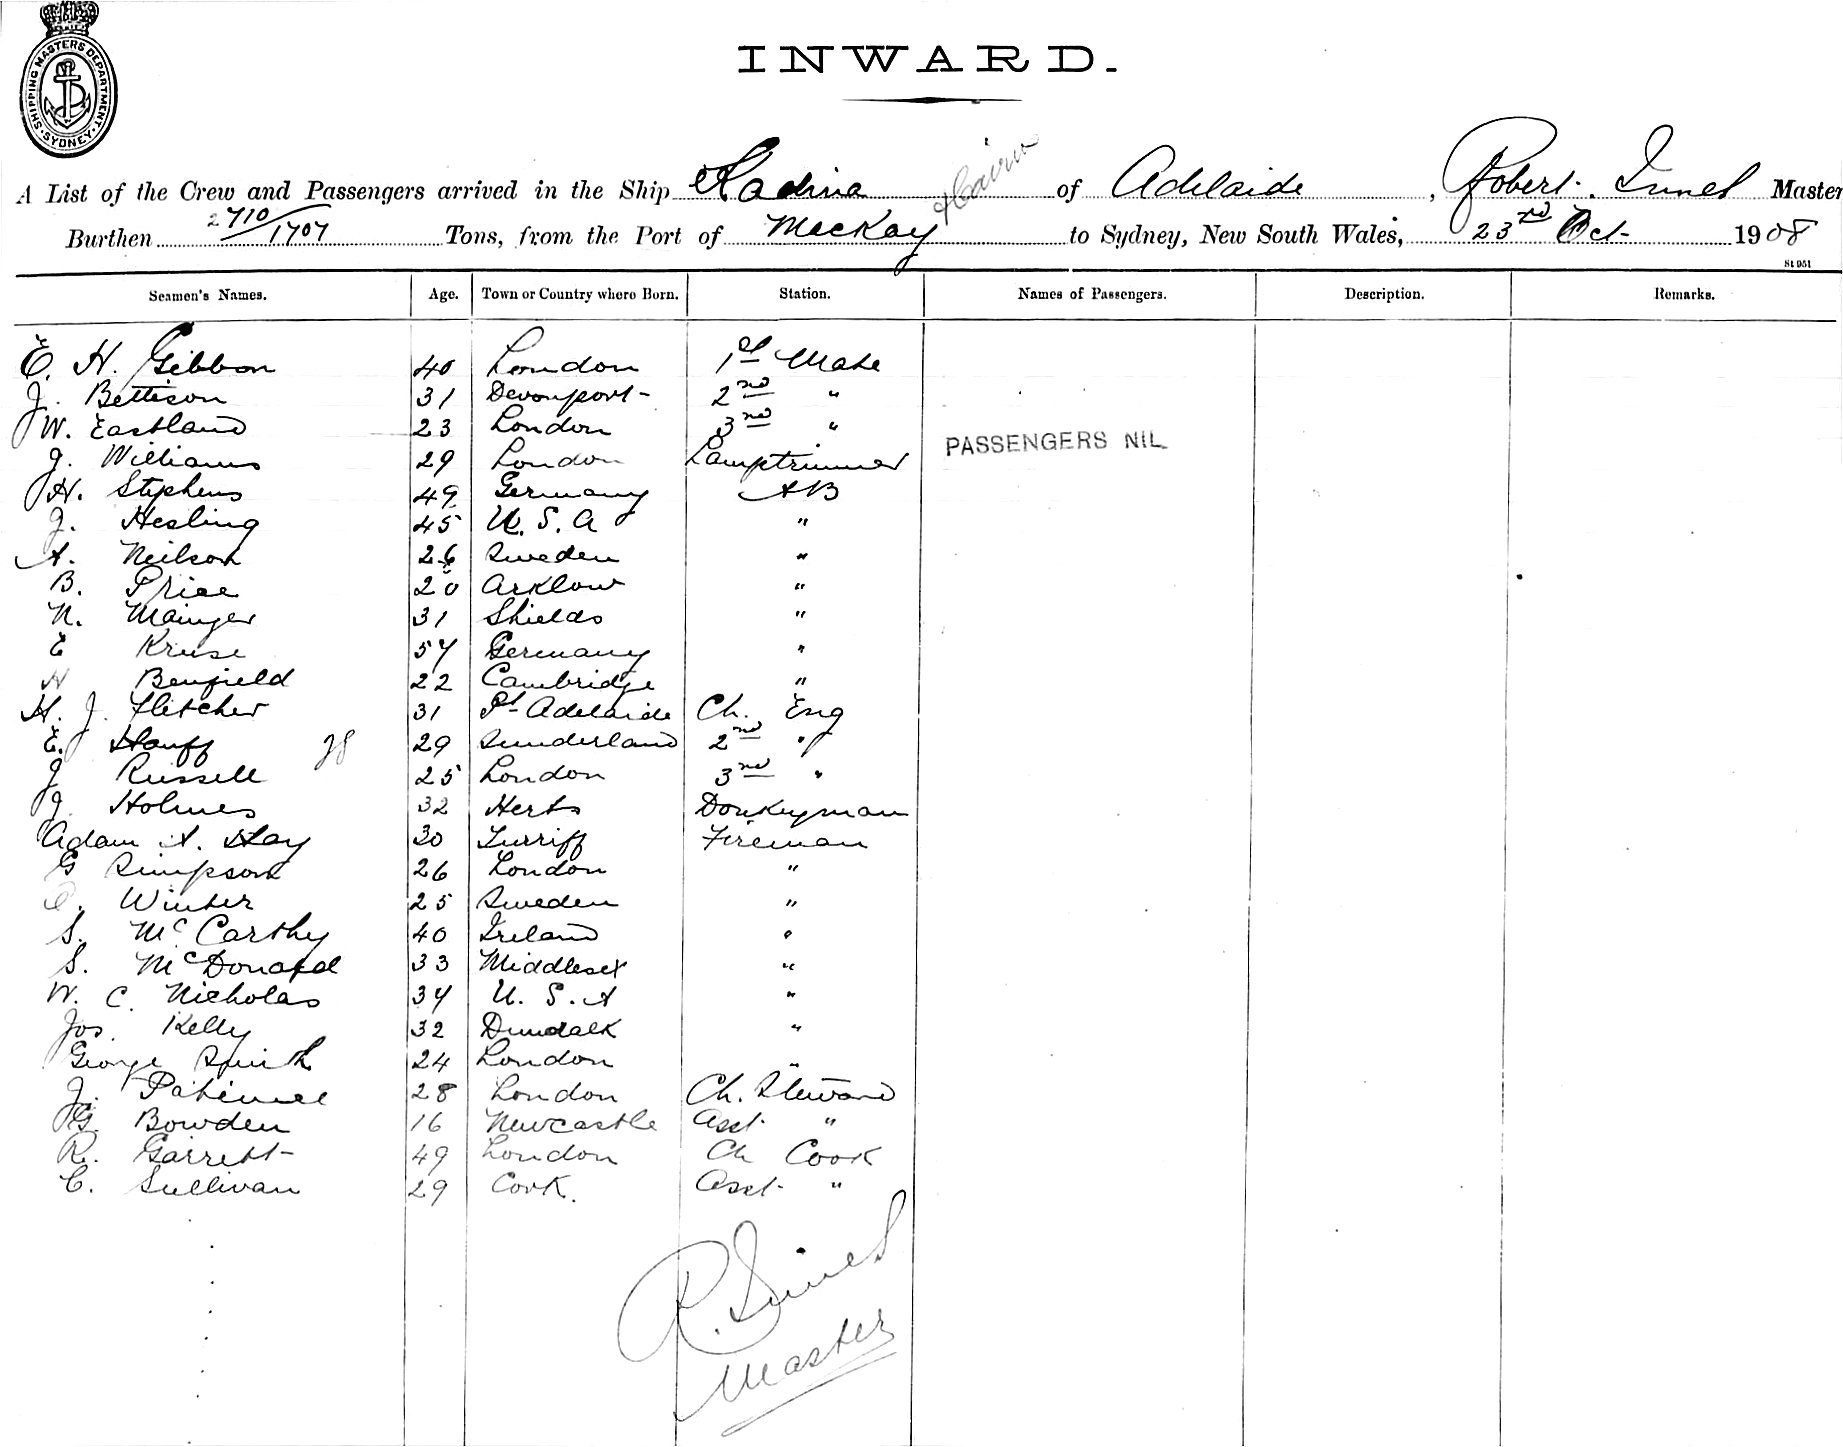 SHIPPING MASTERS DEPARTMENT · SYDNEY ·
INWARD.
A List of the Crew and Passengers arrived in the Ship Kadina of Adelaide, Robert Innes Master
& Cairns
Burthen 2710/1707 Tons, from the Port of MacKay to Sydney, New South Wales, 23rd Oct 1908
St 951
Seamen's Names. Age. Town or Country where Born. Station. Names of Passengers. Description. Remarks.
E. H. Gibbon 40 London 1st Mate
J. Bettison 31 Devonport 2nd "
W. Eastland 23 London 3rd "
J. Williams 29 London Lamptrimmer
PASSENGERS NIL
H. Stephens 49 Germany AB
J. Hesling 45 U.S.A "
A. Neilson 26 Sweden "
B. Price 20 Arklow "
N. Mainger 31 Shields "
E Kruse 57 Germany "
H Benfield 22 Cambridge "
H. J. Fletcher 31 Pt Adelaide Ch. Eng
E. Hauff 29 Sunderland 2nd "
J Russell 25 London 3rd "
J. Holmes 32 Herts Donkeyman
Adam A. Hay 30 Turriff Fireman
G Simpson 26 London "
O. Winter 25 Sweden "
S. McCarthy 40 Ireland "
S. McDonald 33 Middlesex "
W. C. Nicholas 34 U.S.A "
Jos. Kelly 32 Dundalk "
George Smith 24 London "
J. Patience 28 London Ch. Steward
G. Bowden 16 Newcastle Asst "
R. Garrett 49 London Ch Cook
C. Sullivan 29 Cork. Asst "
R. Innes
Master